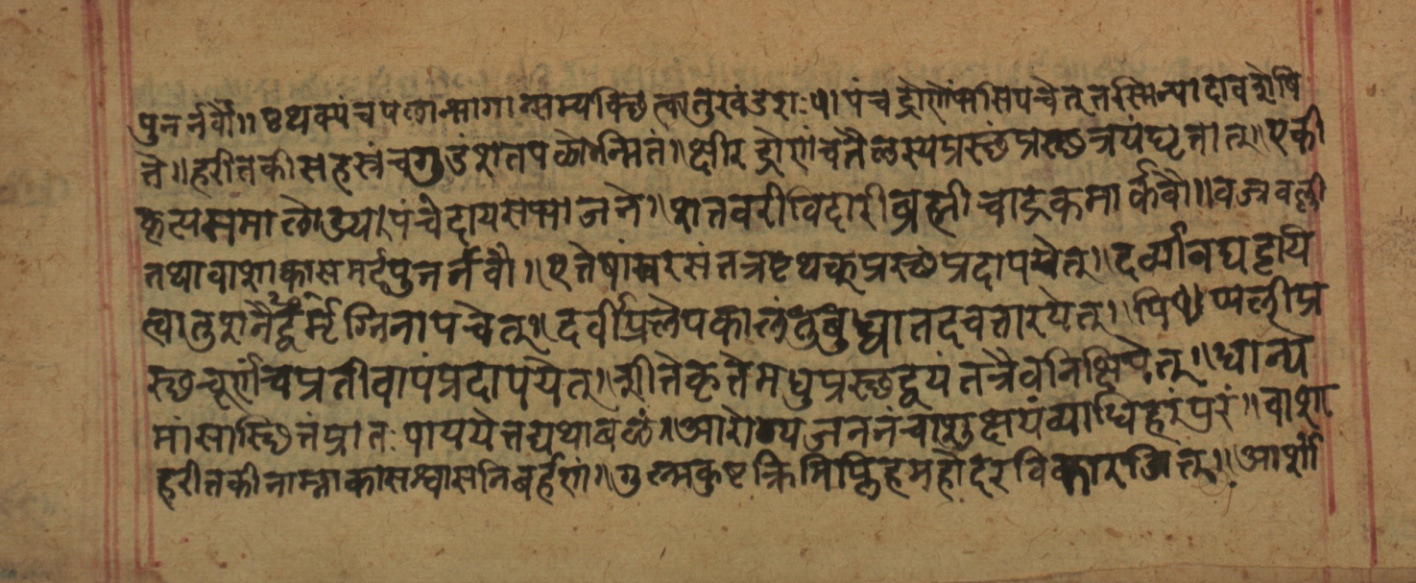 पुनर्नवौ॥ पृथक्पंचपलान्भागान्सम्यक्छित्वातुखंडशः॥ पंचद्रोणेंभसिपचेत्तत्तस्मिन्पादावशेषि
ते॥ हरीतकीसहस्रंचगुडंशतपळोन्मितं॥ क्षीरद्रोणंचतैळस्यप्रस्छंप्रस्छत्रयंघृतात्॥ एकी
कृत्यसमाळोड्यपंचेदायसभाजने॥ शतवरीविदारीब्रह्मीचार्द्रकमार्कवौ॥ वज्रवल्ली
तथावाशाकासमर्दपुनर्नवौ॥ एतेषांस्वरसंतत्रपृथक्प्रस्छंप्रदापयेत्॥ दर्व्याविघट्टयि
त्वातुशनैर्मृद्वग्निनापचेत्॥ दर्वीप्रलेपकालंतुबुध्वातदवतारयेत्॥ पिप्पलीप्र
स्छचूर्णंचप्रतीवापंप्रदापयेत्॥ शीतेकृतेमधुप्रस्छद्वयंतत्रैवनिक्षिपेत्॥ धान्य
मांसास्छितंप्रातःपाययेत्तद्यथाबळं॥ आरोग्यजननंचाशुक्षयंव्याधिहरंपरं॥ वाशा
हरीतकीनाम्नाकासश्वासनिबर्हणं॥ गुल्मकुष्टक्रिमिप्लिहमहोदरविकारजित्॥ आर्शां